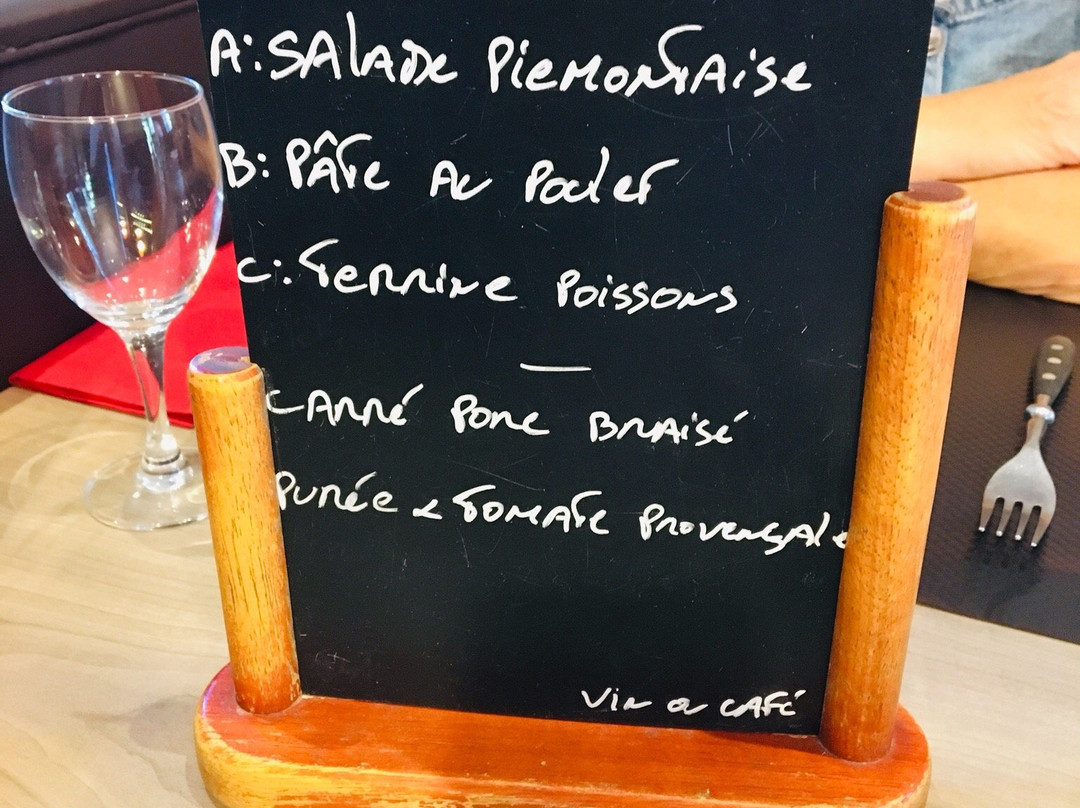 A: SALADE PiEMONTAise
B: PÂTE AU POULET
C: TERRINE Poissons
—
CARRÉ PORC BRAISÉ
PURÉE & TOMATE PROVENÇALE
Vin ou CAFÉ